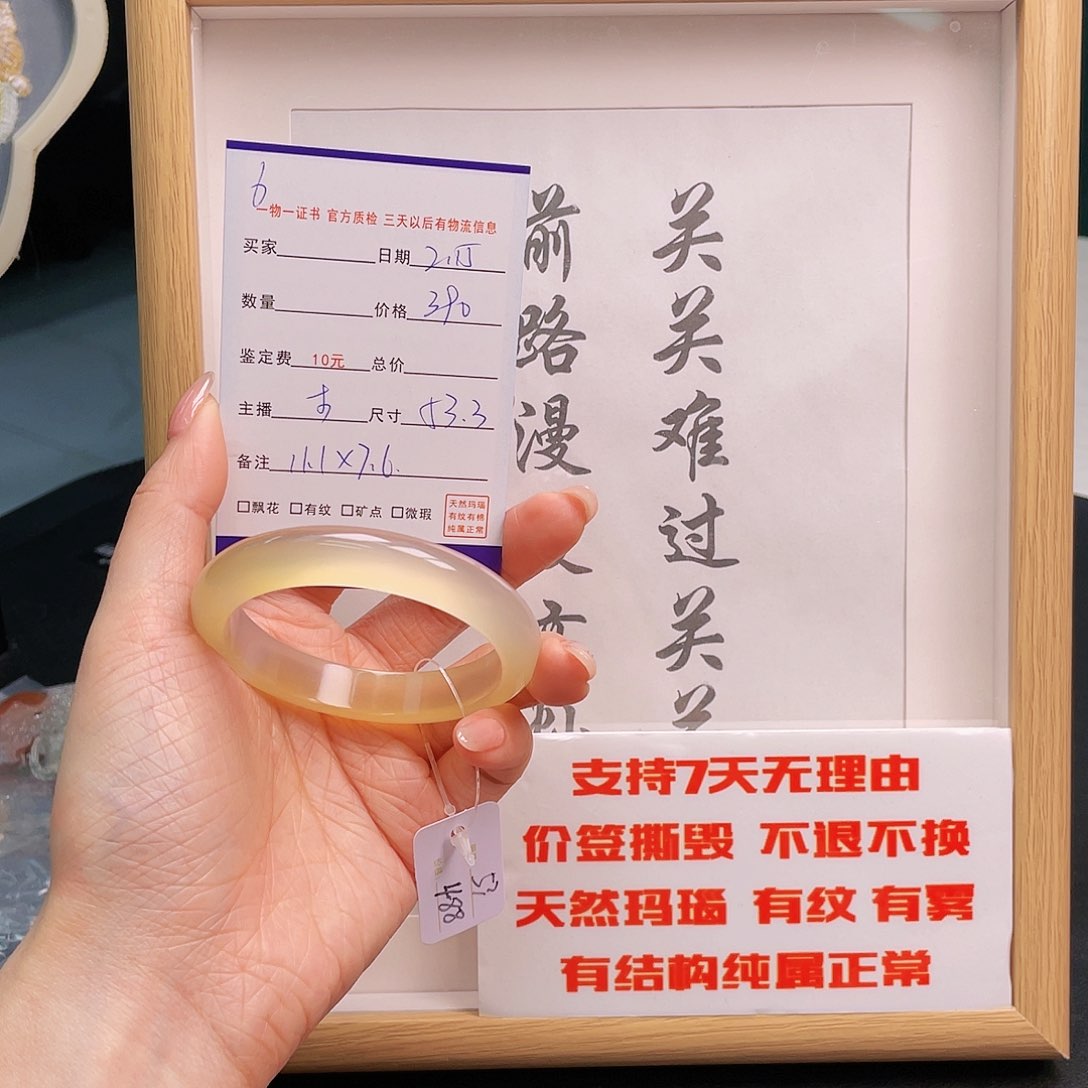 6
一物一证书 官方质检 三天以后有物流信息
买家 日期 2.15
数量 价格 390
鉴定费 10元 总价
主播 尺寸 53.3
备注 11.1×7.6.
□飘花 □有纹 □矿点 □微瑕
天然玛瑙
有纹有棉
纯属正常
关关难过关关
前路漫
支持7天无理由
价签撕毁 不退不换
天然玛瑙 有纹 有雾
有结构纯属正常
53
488